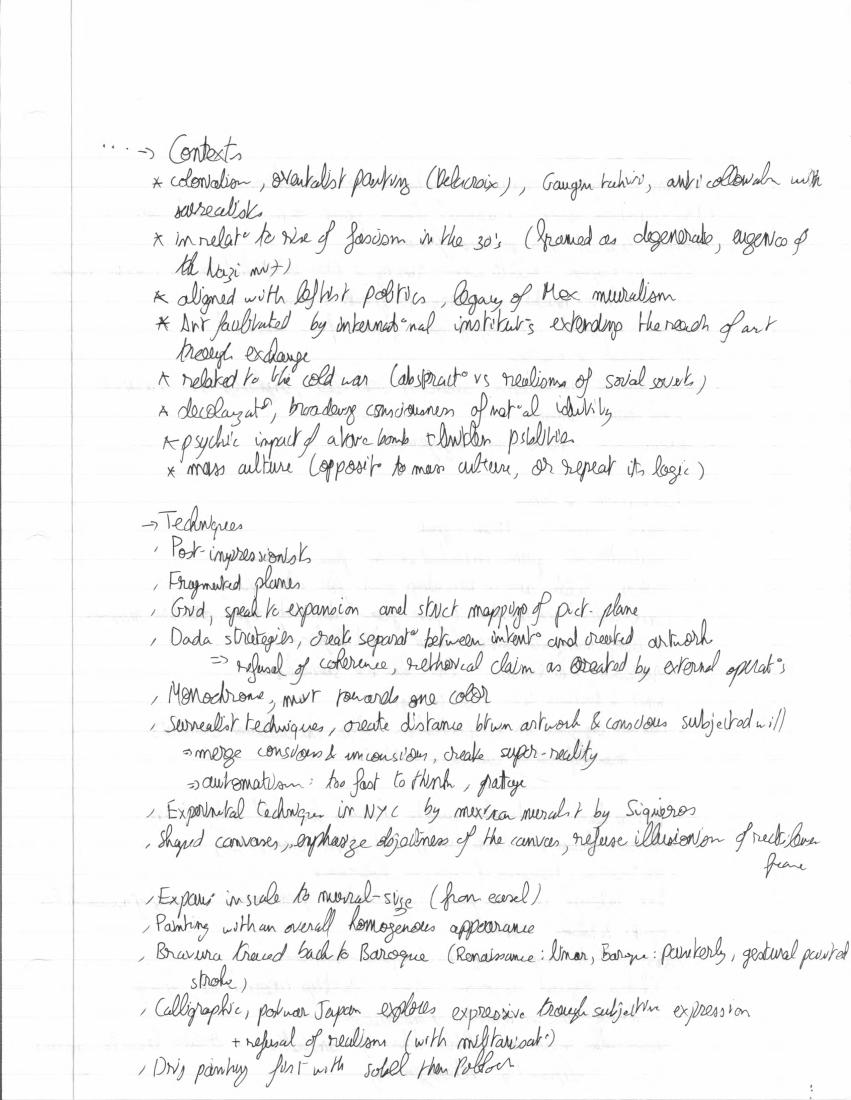 ... → Contexts
* colonialism, orientalist painting (Delacroix), Gaugin tahiti, anti with
surrealists
* in relat° to rise of fascism in the 30's (framed as degenerate, eugenics of
the Nazi mvt)
* aligned with leftist politics, legacy of Mex muuralism
* Art facilitated by internat°nal institut°s extending the reach of art
through exchange
* related to the cold war (abstract° vs realisms of soviets)
* , broadening consciousness of nat°al identity
* psychic impact of bomb +
* mass culture (opposit° to mass culture, or repeat its logic)
→ Techniques
, Post-impressionists
, Fragmented planes
, Grid, speak to expansion and struct mapping of pict. plane
, Dada strategies, create separat° between intent° and created artwork
⇒ refusal of coherence, rethorical claim as created by external operat°s
, Monochrone, mvt towards one color
, Surrealist techniques, create distance btwn artwork & conscious subjected will
⇒ merge conscious & unconscious, create super-reality
⇒ automatism: too fast to think,
, Experimetal techniques in NYC by muralist by Siqueiros
, Shaped canvases, emphasize objectness of the canvas, refuse illusionism of rectilinear
frame
, Expans° in scale to mural-size (from easel)
, Painting with an overall homogenous appearance
, Bravura traced back to Baroque (Renaissance: linear, Baroque: painterly, gestural painted
stroke)
, Calligraphic, postwar Japan explores expressive through subjective expression
+ refusal of realism (with militarisat°)
, Drip painting first with sobel then Pollock